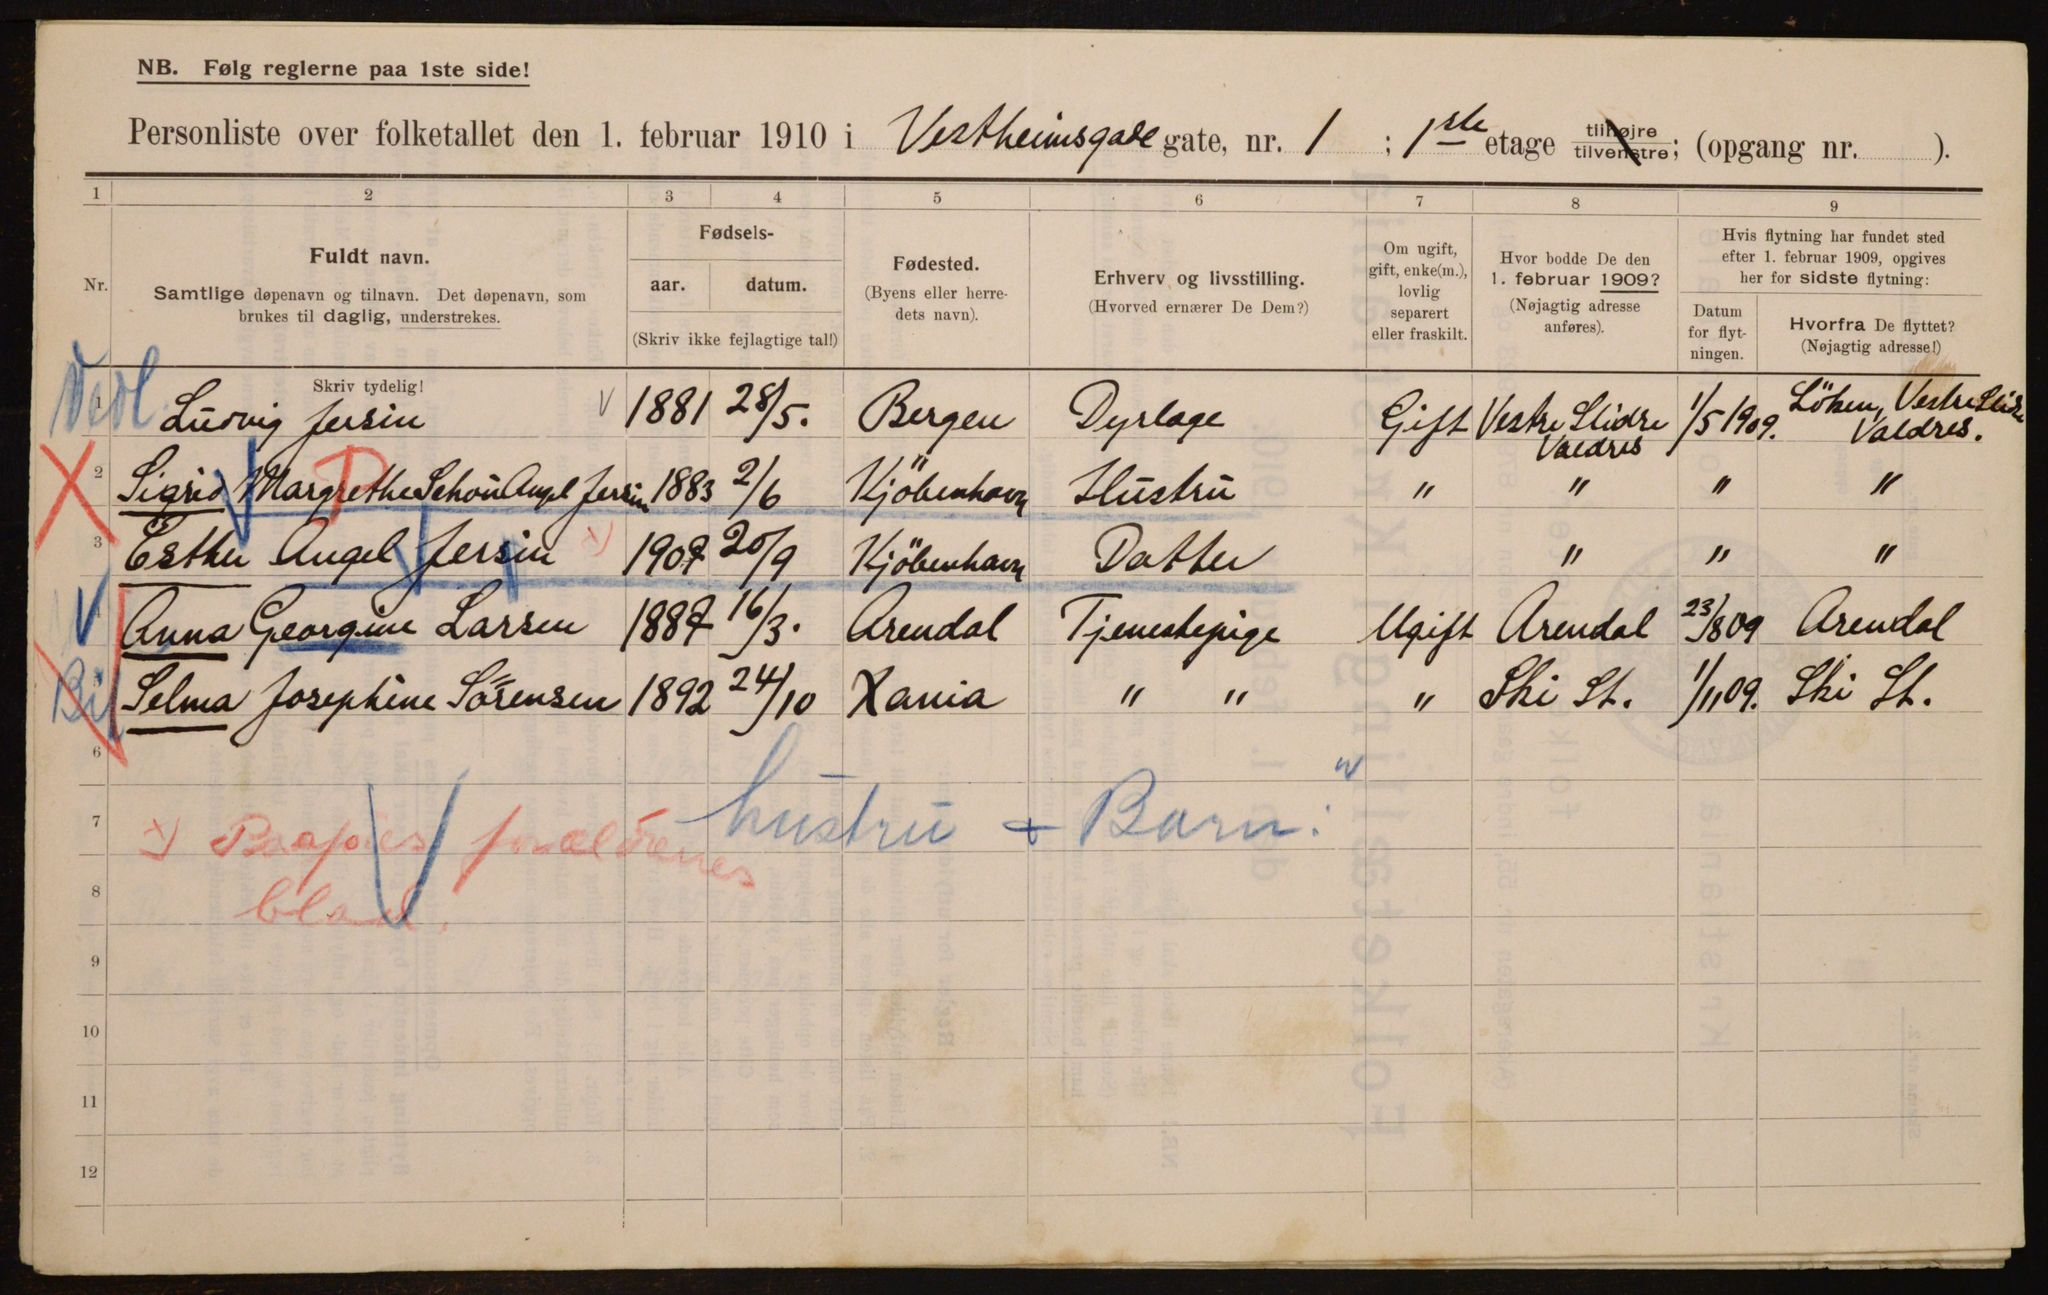 NB. Følg reglerne paa 1ste side!
Personliste over folketallet den 1. februar 1910 i Vestheimsgade gate, nr. 1 ; 1ste etage tilhøjre tilvenstre; (opgang nr. ).
1 2 3 4 5 6 7 8 9
Nr.
Fuldt navn.
Samtlige døpenavn og tilnavn. Det døpenavn, som
brukes til daglig, understrekes.
Skriv tydelig!
Fødsels-
aar. datum.
(Skriv ikke fejlagtige tal!)
Fødested.
(Byens eller herre-
dets navn).
Erhverv og livsstilling.
(Hvorved ernærer De Dem?)
Om ugift,
gift, enke(m.),
lovlig
separert
eller fraskilt.
Hvor bodde De den
1. februar 1909?
(Nøjagtig adresse
anføres).
Hvis flytning har fundet sted
efter 1. februar 1909, opgives
her for sidste flytning:
Datum
for flyt-
ningen.
Hvorfra De flyttet?
(Nøjagtig adresse!)
1 Ludvig Jersin 1881 28/5. Bergen Dyrlæge Gift Vestre Slidre Valdres 1/5 1909. Löken, Vestre Slidre Valdres.
2 Sigrid Margrethe Schou Angel Jersin 1883 2/6 Kjöbenhavn Hustru " " " "
3 Esther Angel Jersin x) 1907 20/9 Kjöbenhavn Datter " " "
Anna Georgine Larsen 1887 16/3. Arendal Tjenestepige Ugift Arendal 23/8 09 Arendal
Selma Josephine Sörensen 1892 24/10 Xania " " " Ski St. 1/11 09. Ski St.
6
7 hustru + Barn.
x) foræeldrenes
8 blad.
9
10
11
12